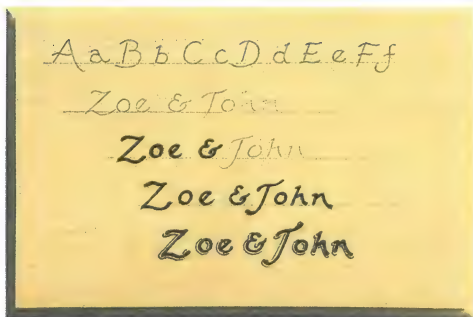 A a B b C c D d E e F f
Zoe & John
Zoe & John
Zoe & John
Zoe & John